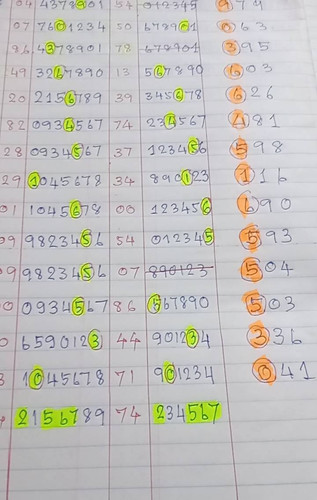 04 4378901 54 012345 974
07 7601234 50 678901 063
86 4378901 78 678901 395
49 3267890 13 567890 603
20 2156789 39 345678 626
82 0934567 74 234567 481
28 0934567 37 123456 598
29 1045678 34 890123 116
01 1045678 00 123456 690
09 9823456 54 012345 593
9 9823456 07 890123 504
0 0934567 86 567890 503
0 6590123 44 901234 336
3 1045678 71 901234 041
2156789 74 234567